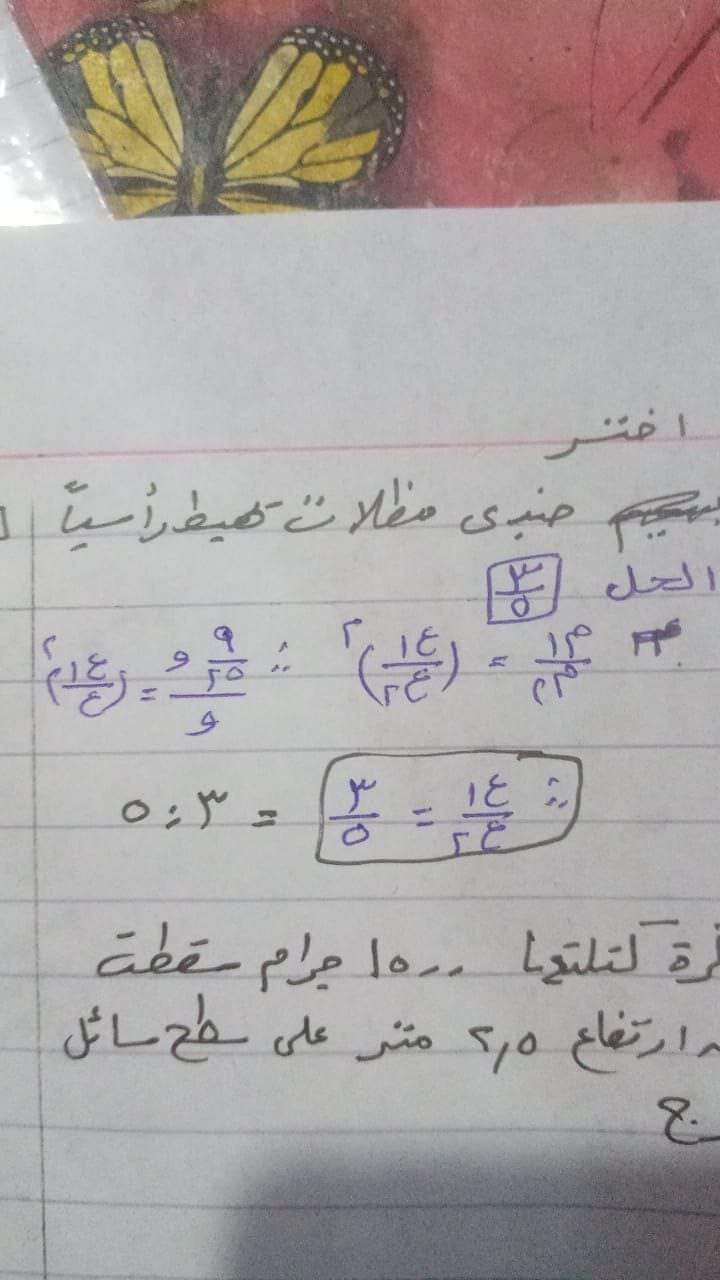 اختر
جندى مظلات تهبط رأسياً
الحل ٣/٥
م١/م٢ = (ع١/ع٢)٢ ∴ ٩/٢٥ و/و = (ع١/ع)٢
∴ ع١/ع٢ = ٣/٥ = ٣ : ٥
كتلتها ١٥٠٠ جرام سقطت
ارتفاع ٢,٥ متر على سطح سائل